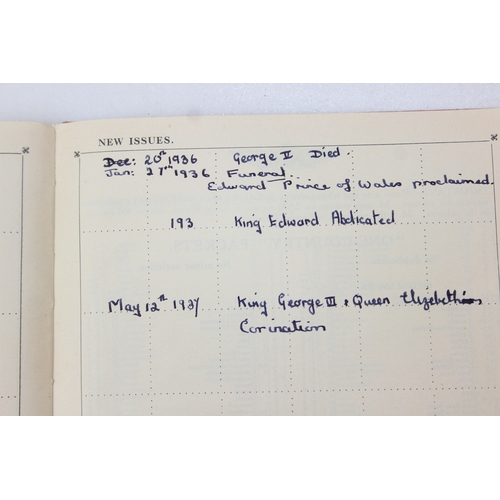 NEW ISSUES.
Dec: 20th 1936 George II Died.
Jan: 27th 1936 Funeral.
Edward Price of Wales proclaimed.
193 King Edward Abdicated
May 12th 1937 King George III & Queen Elizebeth
Corination